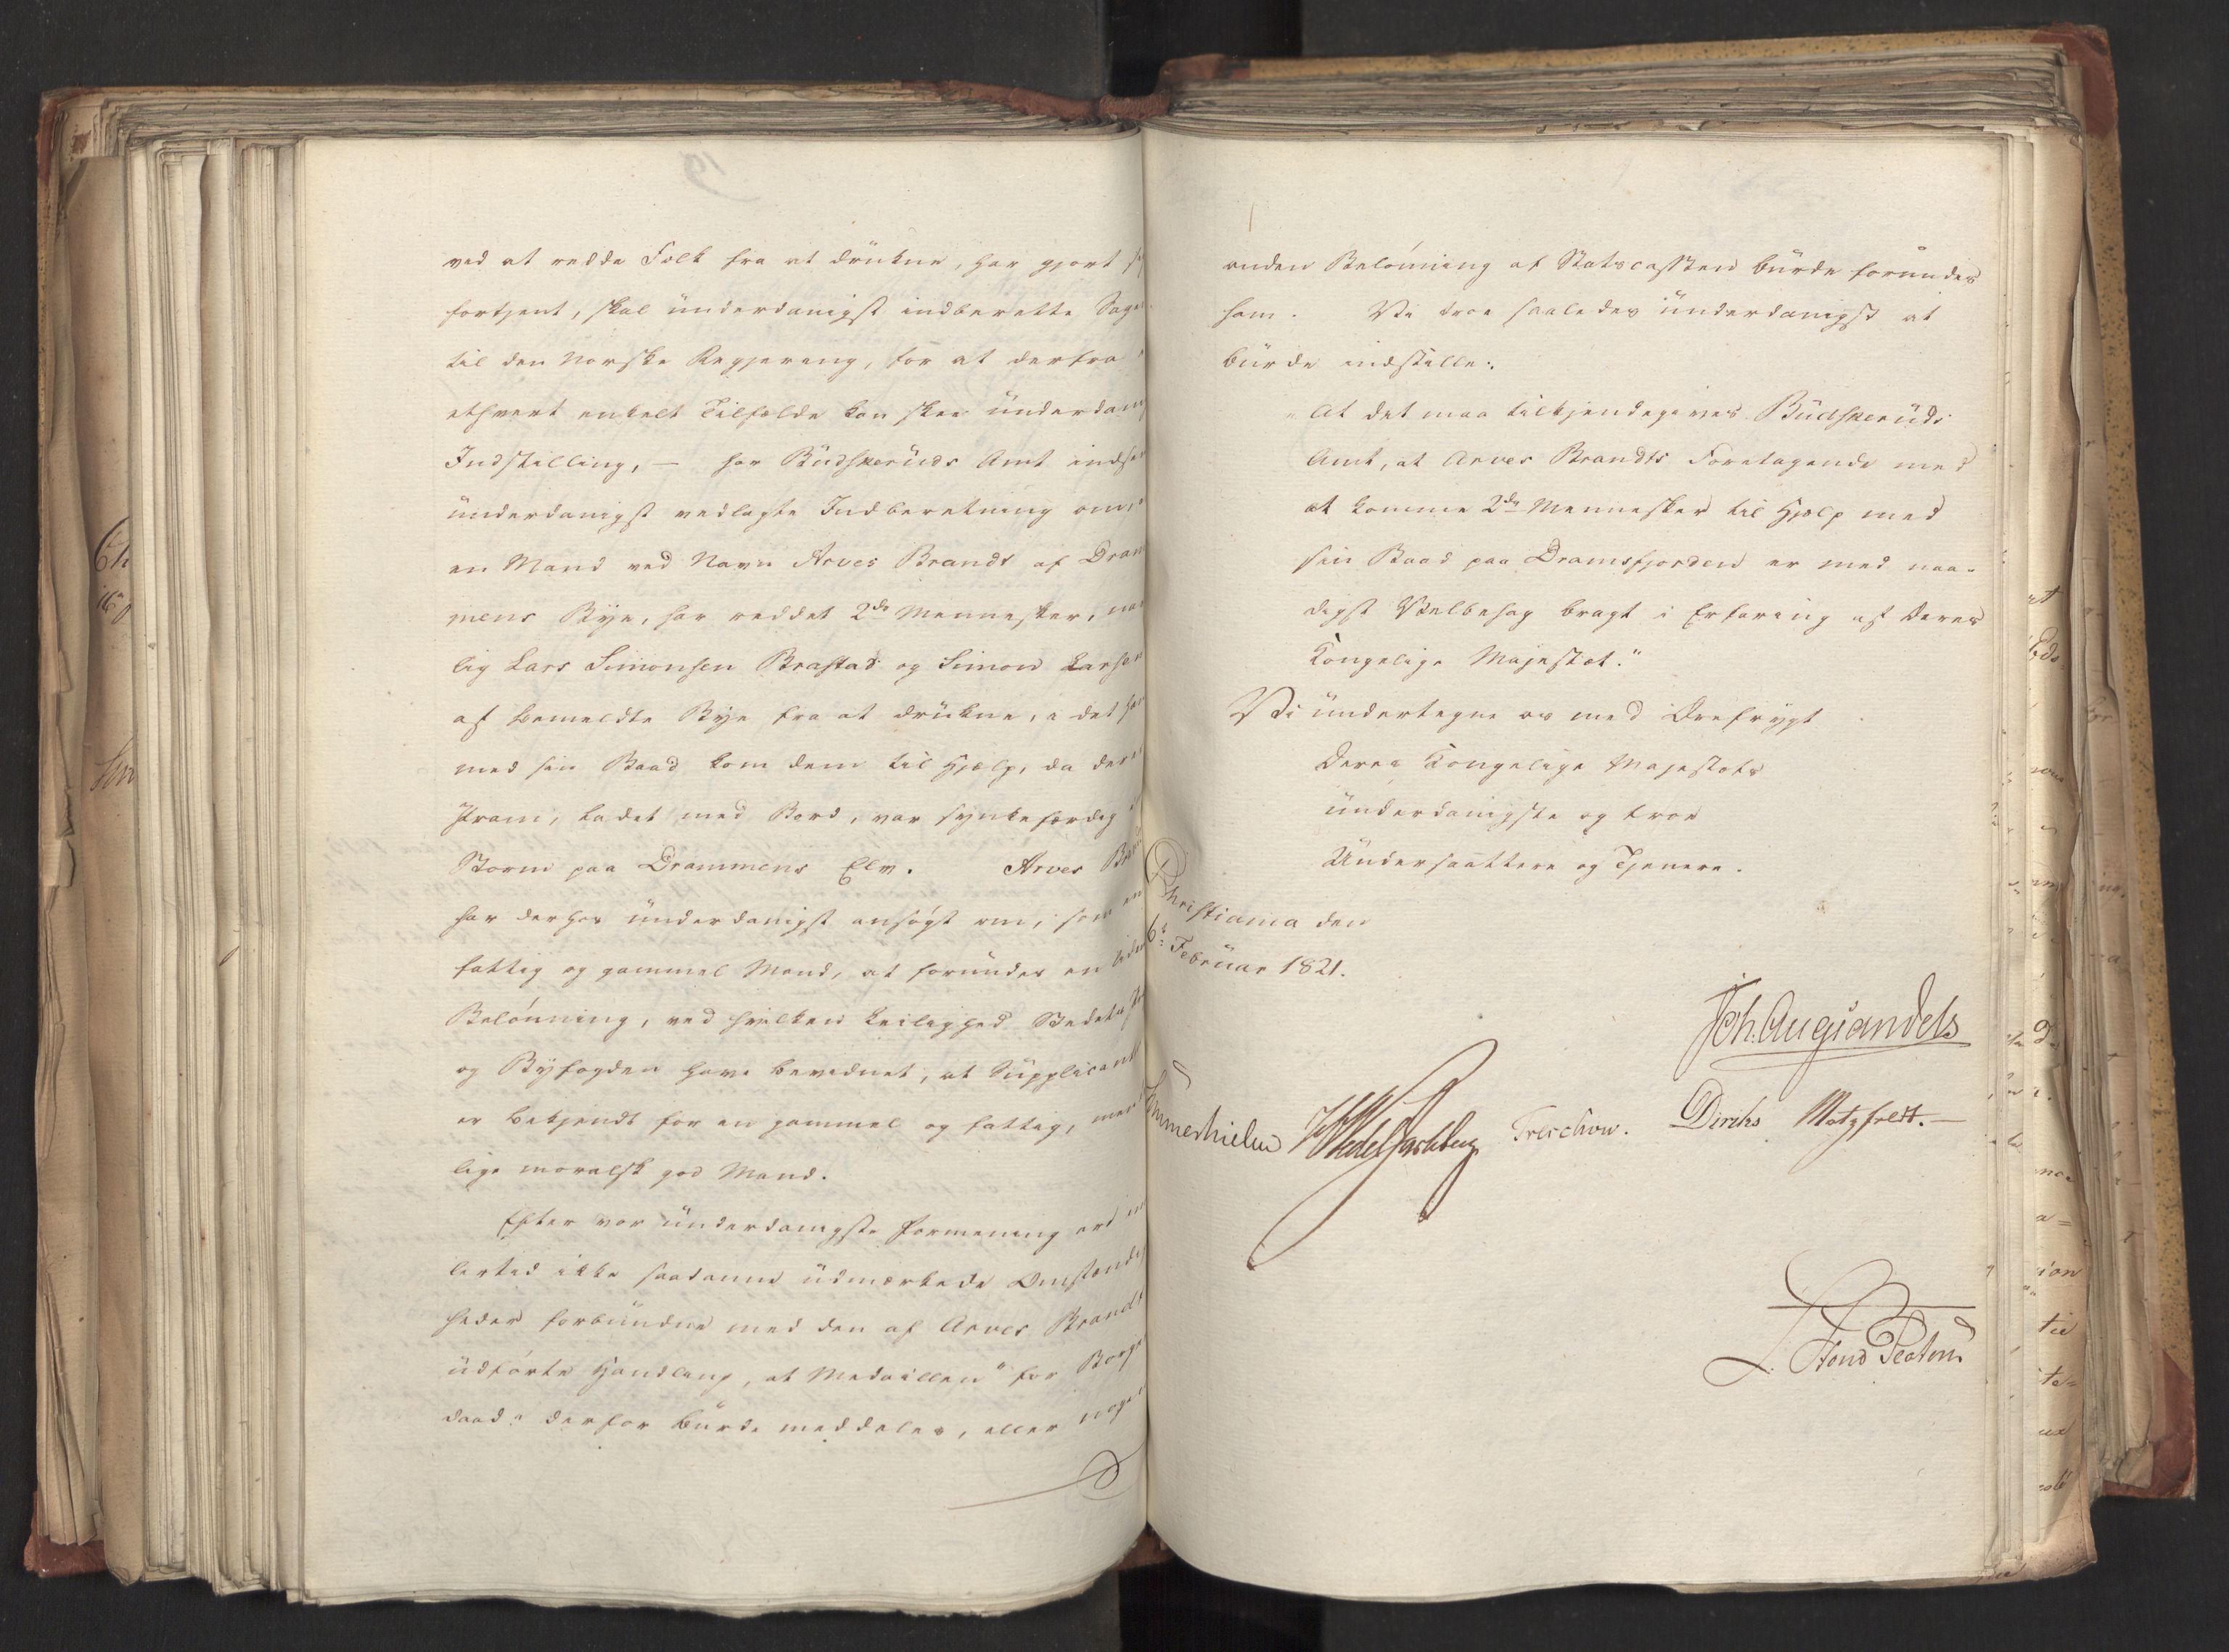 ved at redde Folk fra at drukne, har gjort sig
fortjent, skal underdanigst indberette Sagen
til den Norske Regjering, for at derfra i
ethvert enkelt Tilfælde kan skee underdanig
Indstilling, — har Budskeruds Amt indsen
underdanigst vedlagte Indberetning om, a
en Mand ved Navn Arves Brandt af Dram
mens Bye, har reddet 2de Mennesker, næm
lig Lars Simonsen Brastad og Simon Larsen
af bemeldte Bye fra at drukne, i det han
med sin Baad kom dem til Hjelp, da deres
Pram, ladet med Bord, var synkefærdig i
Storm paa Drammens Elv. Arves Brandt
har derhos underdanigst ansøgt om, som en
fattig og gammel Mand, at forundes en liden
Belønning, ved hvilken Leilighed Stedets
og Byfogden have bevidnet, at Supplicanten
er bekjendt for en gammel og fattig, men
lige moralsk god Mand.
Efter vor underdanigste Formening ere im
lertid ikke saadanne udmærkede Omstændig
heder forbundne med den af Arves Brandt
udførte Handling, at Medaillen "for Borger
daad" derfor burde meddeles, eller nogen
anden Belønning af Statscassten burde forundes
ham. Vi troe saaledes underdanigst at
burde indstille:
"At det maa tilkjendegives Budskeruds
Amt, at Arves Brandts Foretagende med
at komme 2de Mennesker til Hjelp med
sin Baad paa Dramsfjorden er med naa-
digst Velbehag bragt i Erfaring af Deres
Kongelige Majestæt."
Vi undertegne os med Ærefrygt
Deres Kongelige Majestæts
underdanigste og troe
Undersaattere og Tjenere.
Christiania den
6te Februar 1821.
Joh. Aug Sandels
Sommerhielm Wedel Jarlsberg Treschow. Diriks Motzfeldt.
L. Stoud Platou